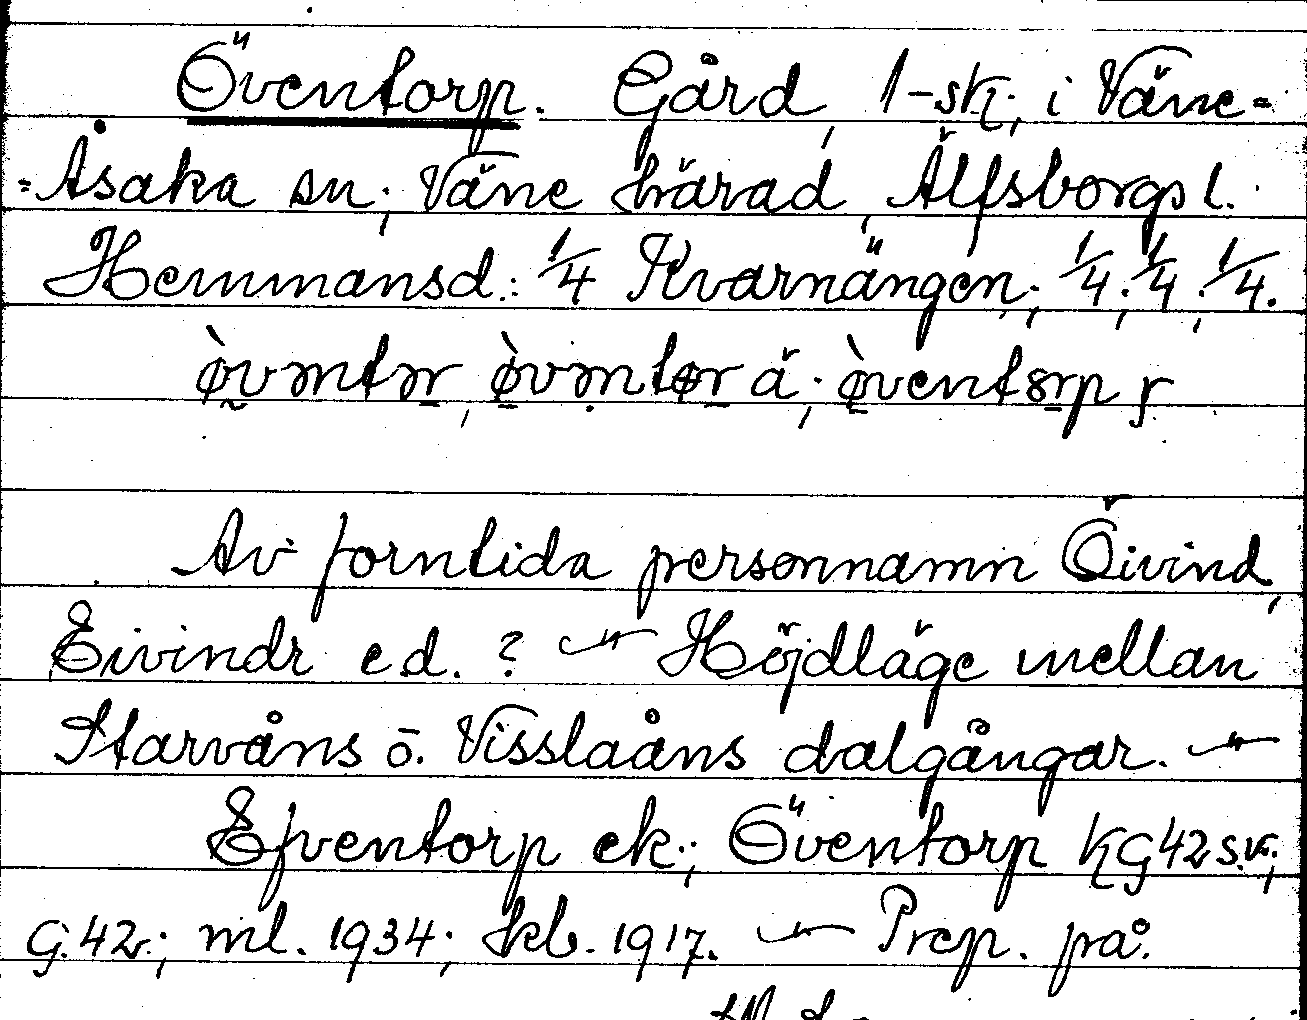 Öventorp. Gård, 1-sk., i Väne-
-Åsaka sn., Väne härad, Älfsborgs l.
Hemmansd.: 1/4 Kvarnängen, 1/4, 1/4, 1/4.
Av forntida personnamn Öivind,
Eivindr e d. ? — Höjdläge mellan
Starvåns o. Visslaåns dalgångar. —
Efventorp ek.; Öventorp KG42 s.v.;
G. 42.; ml. 1934; skb. 1917. — Prep. på.